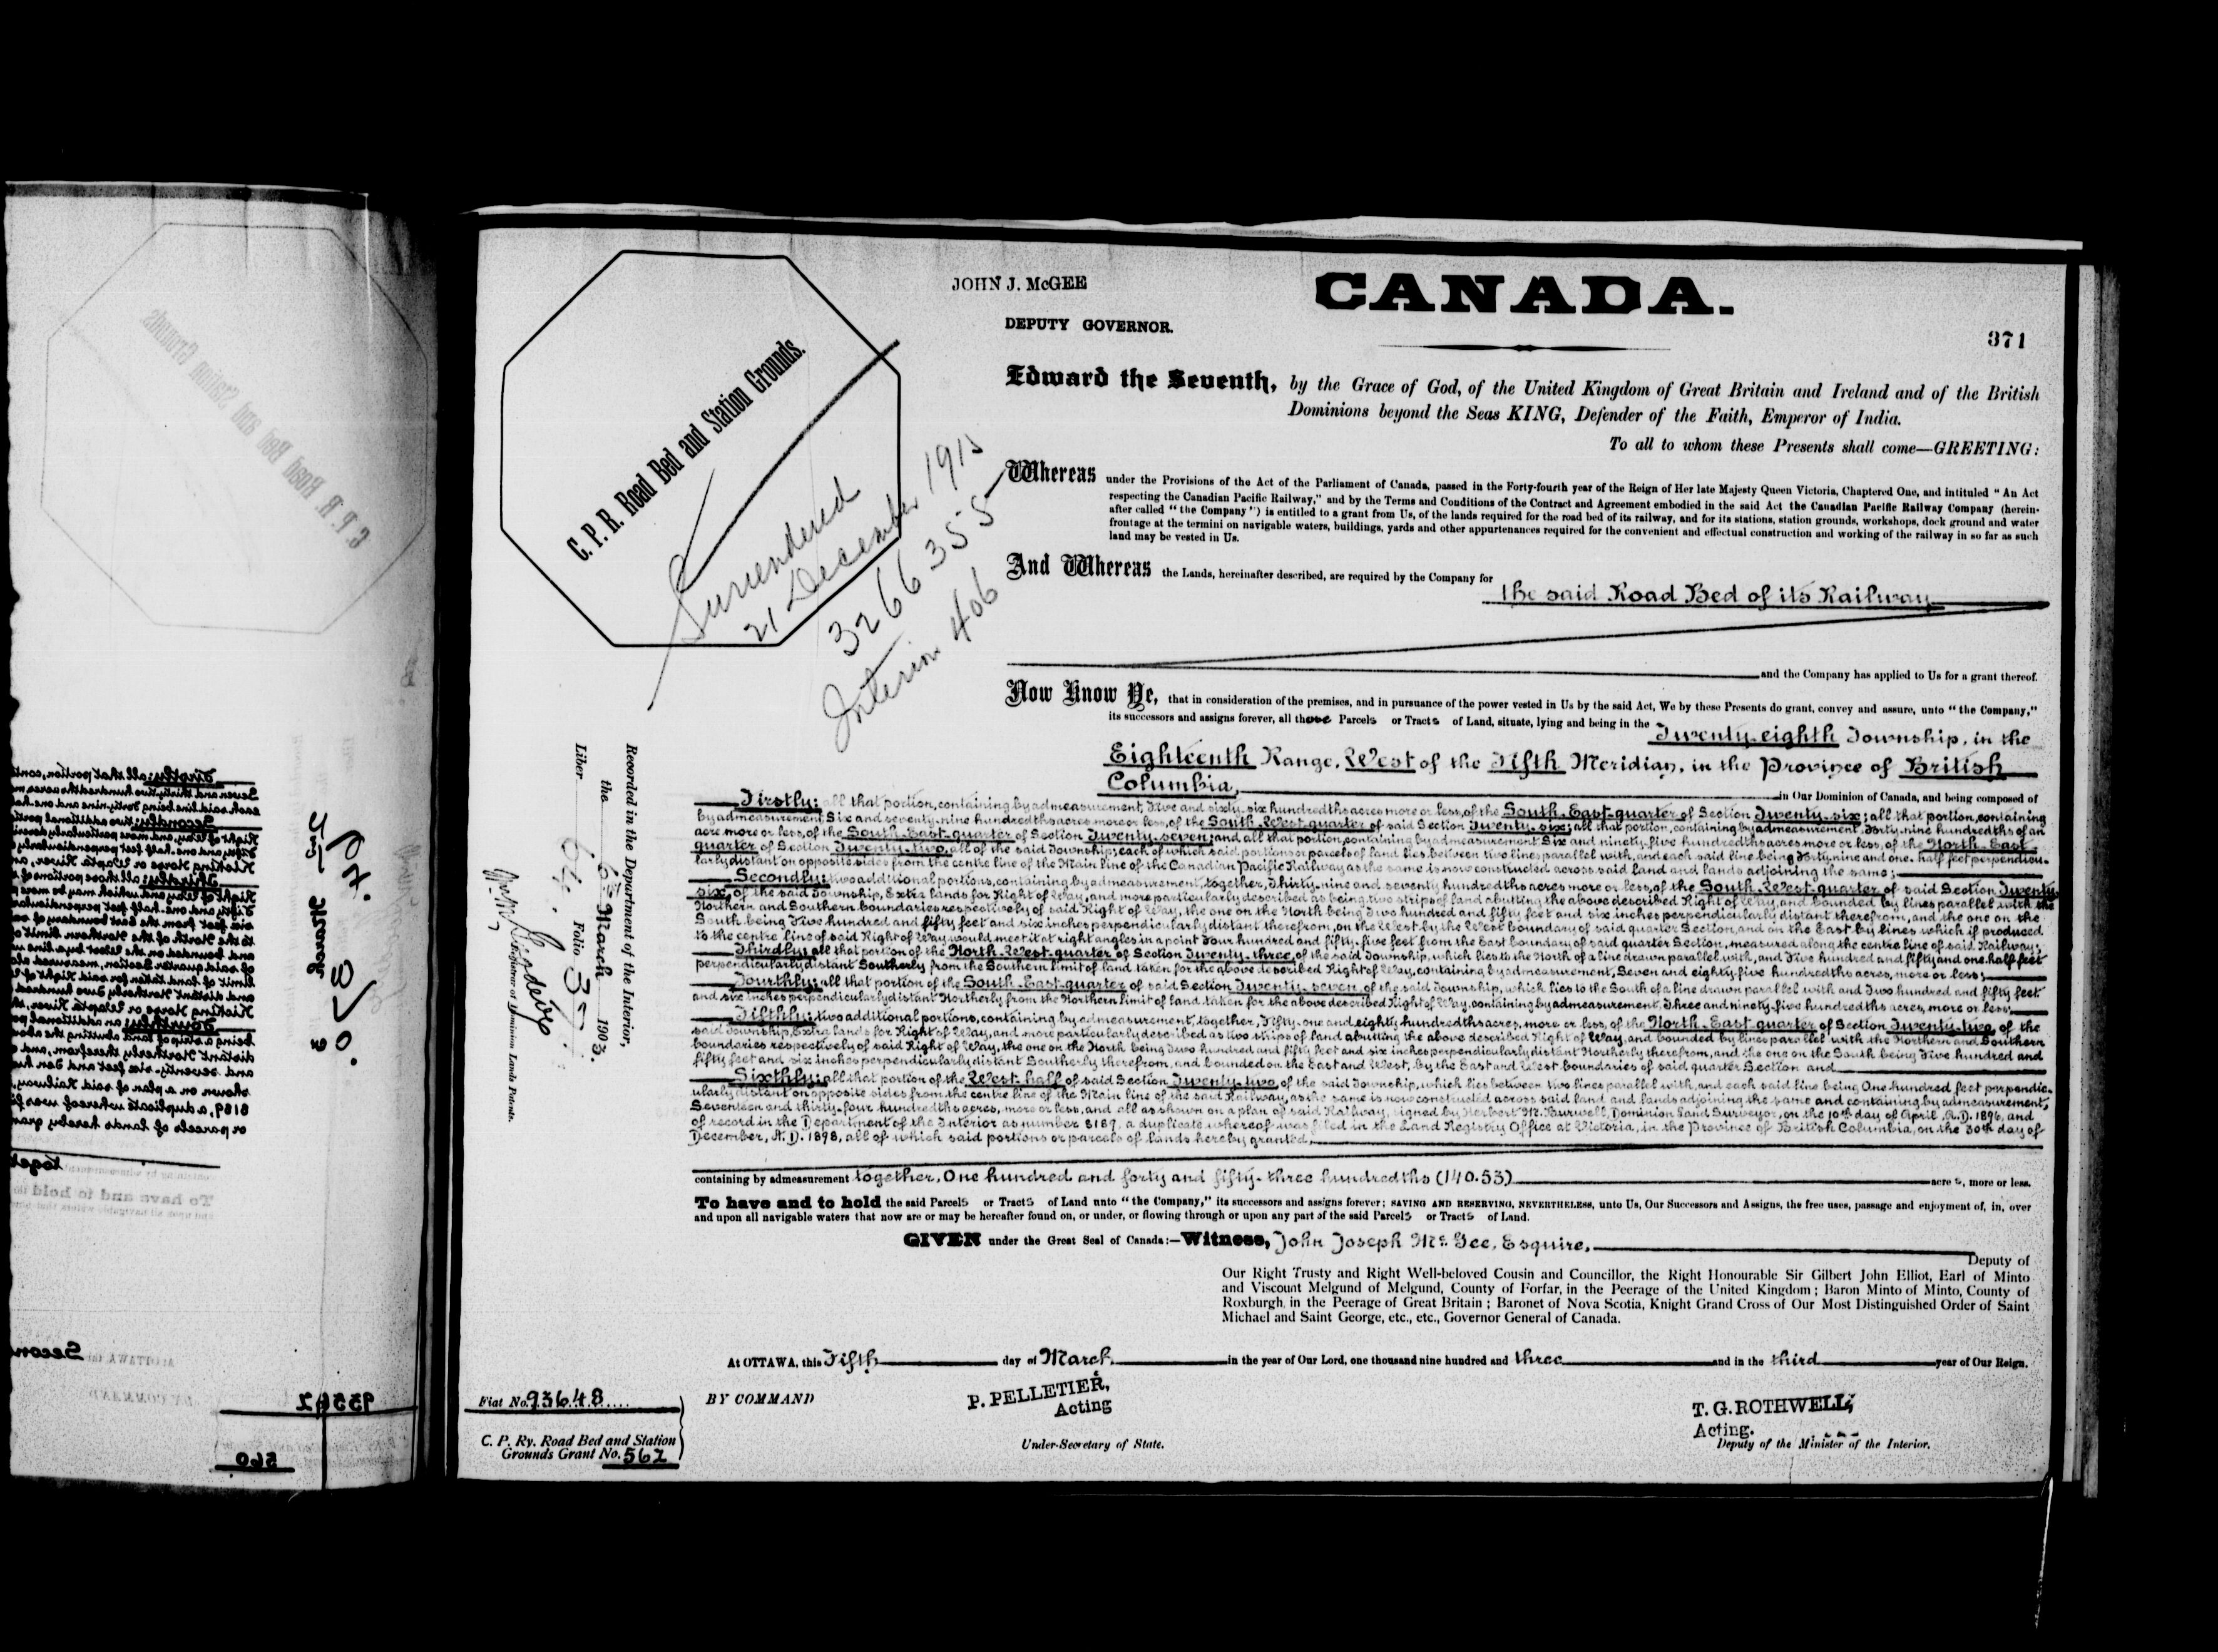 JOHN J. McGEE
DEPUTY GOVERNOR.
CANADA.
371
C. P. R. Road Bed and Station Grounds.
Surrendered
21 December 1915
3266355
Interim 406
Edward the Seventh, by the Grace of God, of the United Kingdom of Great Britain and Ireland and of the British
Dominions beyond the Seas KING, Defender of the Faith, Emperor of India.
To all to whom these Presents shall come—GREETING:
Whereas under the Provisions of the Act of the Parliament of Canada, passed in the Forty-fourth year of the Reign of Her late Majesty Queen Victoria, Chaptered One, and intituled "An Act
respecting the Canadian Pacific Railway," and by the Terms and Conditions of the Contract and Agreement embodied in the said Act the Canadian Pacific Railway Company (herein-
after called "the Company") is entitled to a grant from Us, of the lands required for the road bed of its railway, and for its stations, station grounds, workshops, dock ground and water
frontage at the termini on navigable waters, buildings, yards and other appurtenances required for the convenient and effectual construction and working of the railway in so far as such
land may be vested in Us.
And Whereas the Lands, hereinafter described, are required by the Company for
the said Road Bed of its Railway
and the Company has applied to Us for a grant thereof.
Now Know Ye, that in consideration of the premises, and in pursuance of the power vested in Us by the said Act, We by these Presents do grant, convey and assure, unto "the Company,"
its successors and assigns forever, all those Parcels or Tracts of Land, situate, lying and being in the Twenty-eighth Township, in the
Eighteenth Range, West of the Fifth Meridian, in the Province of British
Columbia, in Our Dominion of Canada, and being composed of
Firstly: all that portion, containing by admeasurement, Five and sixty-six hundredths acres more or less, of the South-East-quarter of Section Twenty-six; all that portion, containing
by admeasurement Six and seventy-nine hundredths acres more or less, of the South-West-quarter of said Section Twenty-six; all that portion, containing by admeasurement, Forty-nine hundredths of an
acre more or less, of the South-East-quarter of Section Twenty-seven; and all that portion, containing by admeasurement Six and ninety-five hundredths acres more or less, of the North-East-
quarter of Section Twenty-two, all of the said Township; each of which said portions or parcels of land lies between two lines parallel with, and each said line being Forty-nine and one-half feet perpendicu-
larly distant on opposite sides from the centre line of the Main line of the Canadian Pacific Railway as the same is now constructed across said land and lands adjoining the same;
Secondly: two additional portions, containing by admeasurement, together, Thirty-nine and seventy hundredths acres more or less, of the South-West-quarter of said Section Twenty-
six, of the said Township, Extra lands for Right of Way, and more particularly described as being two strips of land abutting the above described Right of Way, and bounded by lines parallel with the
Northern and Southern boundaries respectively of said Right of Way, the one on the North being Two hundred and fifty feet and six inches perpendicularly distant therefrom, and the one on the
South being Five hundred and fifty feet and six inches perpendicularly distant therefrom, on the West by the West boundary of said quarter Section, and on the East by lines which if produced
to the centre line of said Right of Way would meet it at right angles in a point Four hundred and fifty-five feet from the East boundary of said quarter Section, measured along the centre line of said Railway;
Thirdly; all that portion of the North-West-quarter of Section Twenty-three, of the said Township, which lies to the North of a line drawn parallel with, and Five hundred and fifty and one-half feet
perpendicularly distant Southerly from the Southern limit of land taken for the above described Right of Way, containing by admeasurement, Seven and eighty-five hundredths acres, more or less;
Fourthly; all that portion of the South-East-quarter of said Section Twenty-seven, of the said Township, which lies to the South of a line drawn parallel with and Two hundred and fifty feet
and six inches perpendicularly distant Northerly from the Northern limit of land taken for the above described Right of Way, containing by admeasurement, Three and ninety-five hundredths acres, more or less;
Fifthly: two additional portions, containing by admeasurement, together, Fifty-one and eighty hundredths acres, more or less, of the North-East-quarter of Section Twenty-two, of the
said Township, Extra lands for Right of Way, and more particularly described as two strips of land abutting the above described Right of Way, and bounded by lines parallel with the Northern and Southern
boundaries respectively of said Right of Way, the one on the North being Two hundred and fifty feet and six inches perpendicularly distant Northerly therefrom, and the one on the South being Five hundred and
fifty feet and six inches perpendicularly distant Southerly therefrom, and bounded on the East and West, by the East and West boundaries of said quarter Section and
Sixthly: all that portion of the West-half of said Section Twenty-two, of the said Township, which lies between two lines parallel with, and each said line being One hundred feet perpendic-
ularly distant on opposite sides from the centre line of the Main line of the said Railway, as the same is now constructed across said land and lands adjoining the same and containing by admeasurement,
Seventeen and thirty-four hundredths acres, more or less, and all as shown on a plan of said Railway, signed by Herbert M. Burwell, Dominion Land Surveyor, on the 10th day of April, A.D. 1896, and
of record in the Department of the Interior as number 8189, a duplicate whereof was filed in the Land Registry Office at Victoria, in the Province of British Columbia, on the 30th day of
December, A.D. 1898, all of which said portions or parcels of lands hereby granted,
containing by admeasurement together, One hundred and forty and fifty-three hundredths (140.53) acres, more or less.
To have and to hold the said Parcels or Tracts of Land unto "the Company," its successors and assigns forever; SAVING AND RESERVING, NEVERTHELESS, unto Us, Our Successors and Assigns, the free uses, passage and enjoyment of, in, over
and upon all navigable waters that now are or may be hereafter found on, or under, or flowing through or upon any part of the said Parcels or Tracts of Land.
GIVEN under the Great Seal of Canada:—Witness, John Joseph McGee, Esquire,
Deputy of
Our Right Trusty and Right Well-beloved Cousin and Councillor, the Right Honourable Sir Gilbert John Elliot, Earl of Minto
and Viscount Melgund of Melgund, County of Forfar, in the Peerage of the United Kingdom; Baron Minto of Minto, County of
Roxburgh, in the Peerage of Great Britain; Baronet of Nova Scotia, Knight Grand Cross of Our Most Distinguished Order of Saint
Michael and Saint George, etc., etc., Governor General of Canada.
At OTTAWA, this Fifth day of March in the year of Our Lord, one thousand nine hundred and three and in the third year of Our Reign.
BY COMMAND
P. PELLETIER,
Acting
Under-Secretary of State.
T. G. ROTHWELL,
Acting.
Deputy of the Minister of the Interior.
Recorded in the Department of the Interior,
the 6th March 1903.
Liber 64. Folio 37
Registrar of Dominion Lands Patents.
Fiat No. 93648
C. P. Ry. Road Bed and Station
Grounds Grant No. 562